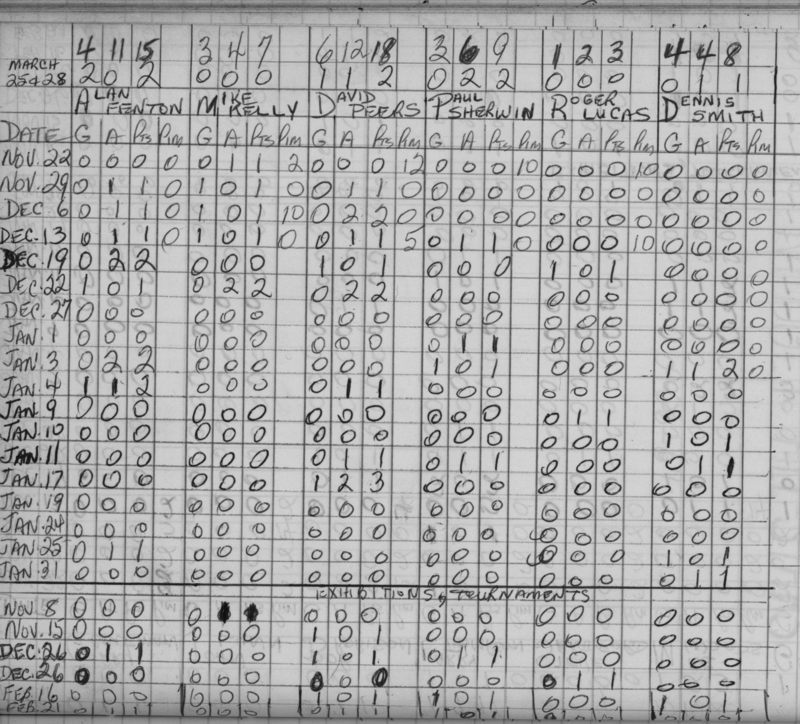 4 11 15 3 4 7 6 12 18 3 6 9 1 2 3 4 4 8
MARCH
25+28 2 0 2 0 0 0 1 1 2 0 2 2 0 0 0 0 1 1
ALAN FENTON MIKE KELLY DAVID PEERS PAUL SHERWIN ROGER LUCAS DENNIS SMITH
DATE G A Pts Pim G A Pts Pim G A Pts Pim G A Pts Pim G A Pts Pim G A Pts Pim
NOV. 22 0 0 0 0 0 1 1 2 0 0 0 12 0 0 0 10 0 0 0 10 0 0 0 0
NOV. 29 0 1 1 0 1 0 1 0 0 1 1 0 0 0 0 0 0 0 0 0 0 0 0 0
DEC. 6 0 1 1 0 1 0 1 10 0 2 2 0 0 0 0 0 0 0 0 0 0 0 0 0
DEC. 13 0 1 1 0 1 0 1 0 0 1 1 5 0 1 1 0 0 0 0 10 0 0 0 0
DEC. 19 0 2 2 0 0 0 1 0 1 0 0 0 1 0 1 0 0 0 0
DEC. 22 1 0 1 0 2 2 0 2 2 0 0 0 0 0 0 0 0 0 0
DEC. 27 0 0 0 0 0 0 0 0 0 0 0 0 0 0 0 0 0 0 0
JAN. 1 0 0 0 0 0 0 0 0 0 0 1 1 0 0 0 0 0 0 0
JAN. 3 0 2 2 0 0 0 0 0 0 1 0 1 0 0 0 1 1 2 0
JAN. 4 1 1 2 0 0 0 0 1 1 0 0 0 0 0 0 0 0 0
JAN. 9 0 0 0 0 0 0 0 0 0 0 0 0 0 1 1 0 0 0
JAN. 10 0 0 0 0 0 0 0 0 0 0 0 0 0 0 0 1 0 1
JAN. 11 0 0 0 0 0 0 0 1 1 0 1 1 0 0 0 0 1 1
JAN. 17 0 0 0 0 0 0 1 2 3 0 0 0 0 0 0 0 0 0
JAN. 19 0 0 0 0 0 0 0 0 0 0 0 0 0 0 0 0 0 0
JAN. 24 0 0 0 0 0 0 0 0 0 0 0 0 0 0 0 0 0 0
JAN. 25 0 1 1 0 0 0 0 0 0 0 0 0 0 0 0 1 0 1
JAN. 31 0 0 0 0 0 0 0 0 0 0 0 0 0 0 0 0 1 1
EXHIBITIONS & TOURNAMENTS
NOV. 8 0 0 0 0 1 1 0 0 0 0 0 0 0 0 0 0 0 0
NOV. 15 0 0 0 0 0 0 1 0 1 0 0 0 0 0 0 0 0 0
DEC. 26 0 1 1 0 0 0 1 0 1 0 1 1 0 0 0 0 0 0
DEC. 26 0 0 0 0 0 0 0 0 0 0 0 0 0 1 1 0 0 0
FEB. 16 0 0 0 0 0 0 1 0 1 1 0 1 0 0 0 1 0 1
FEB. 21